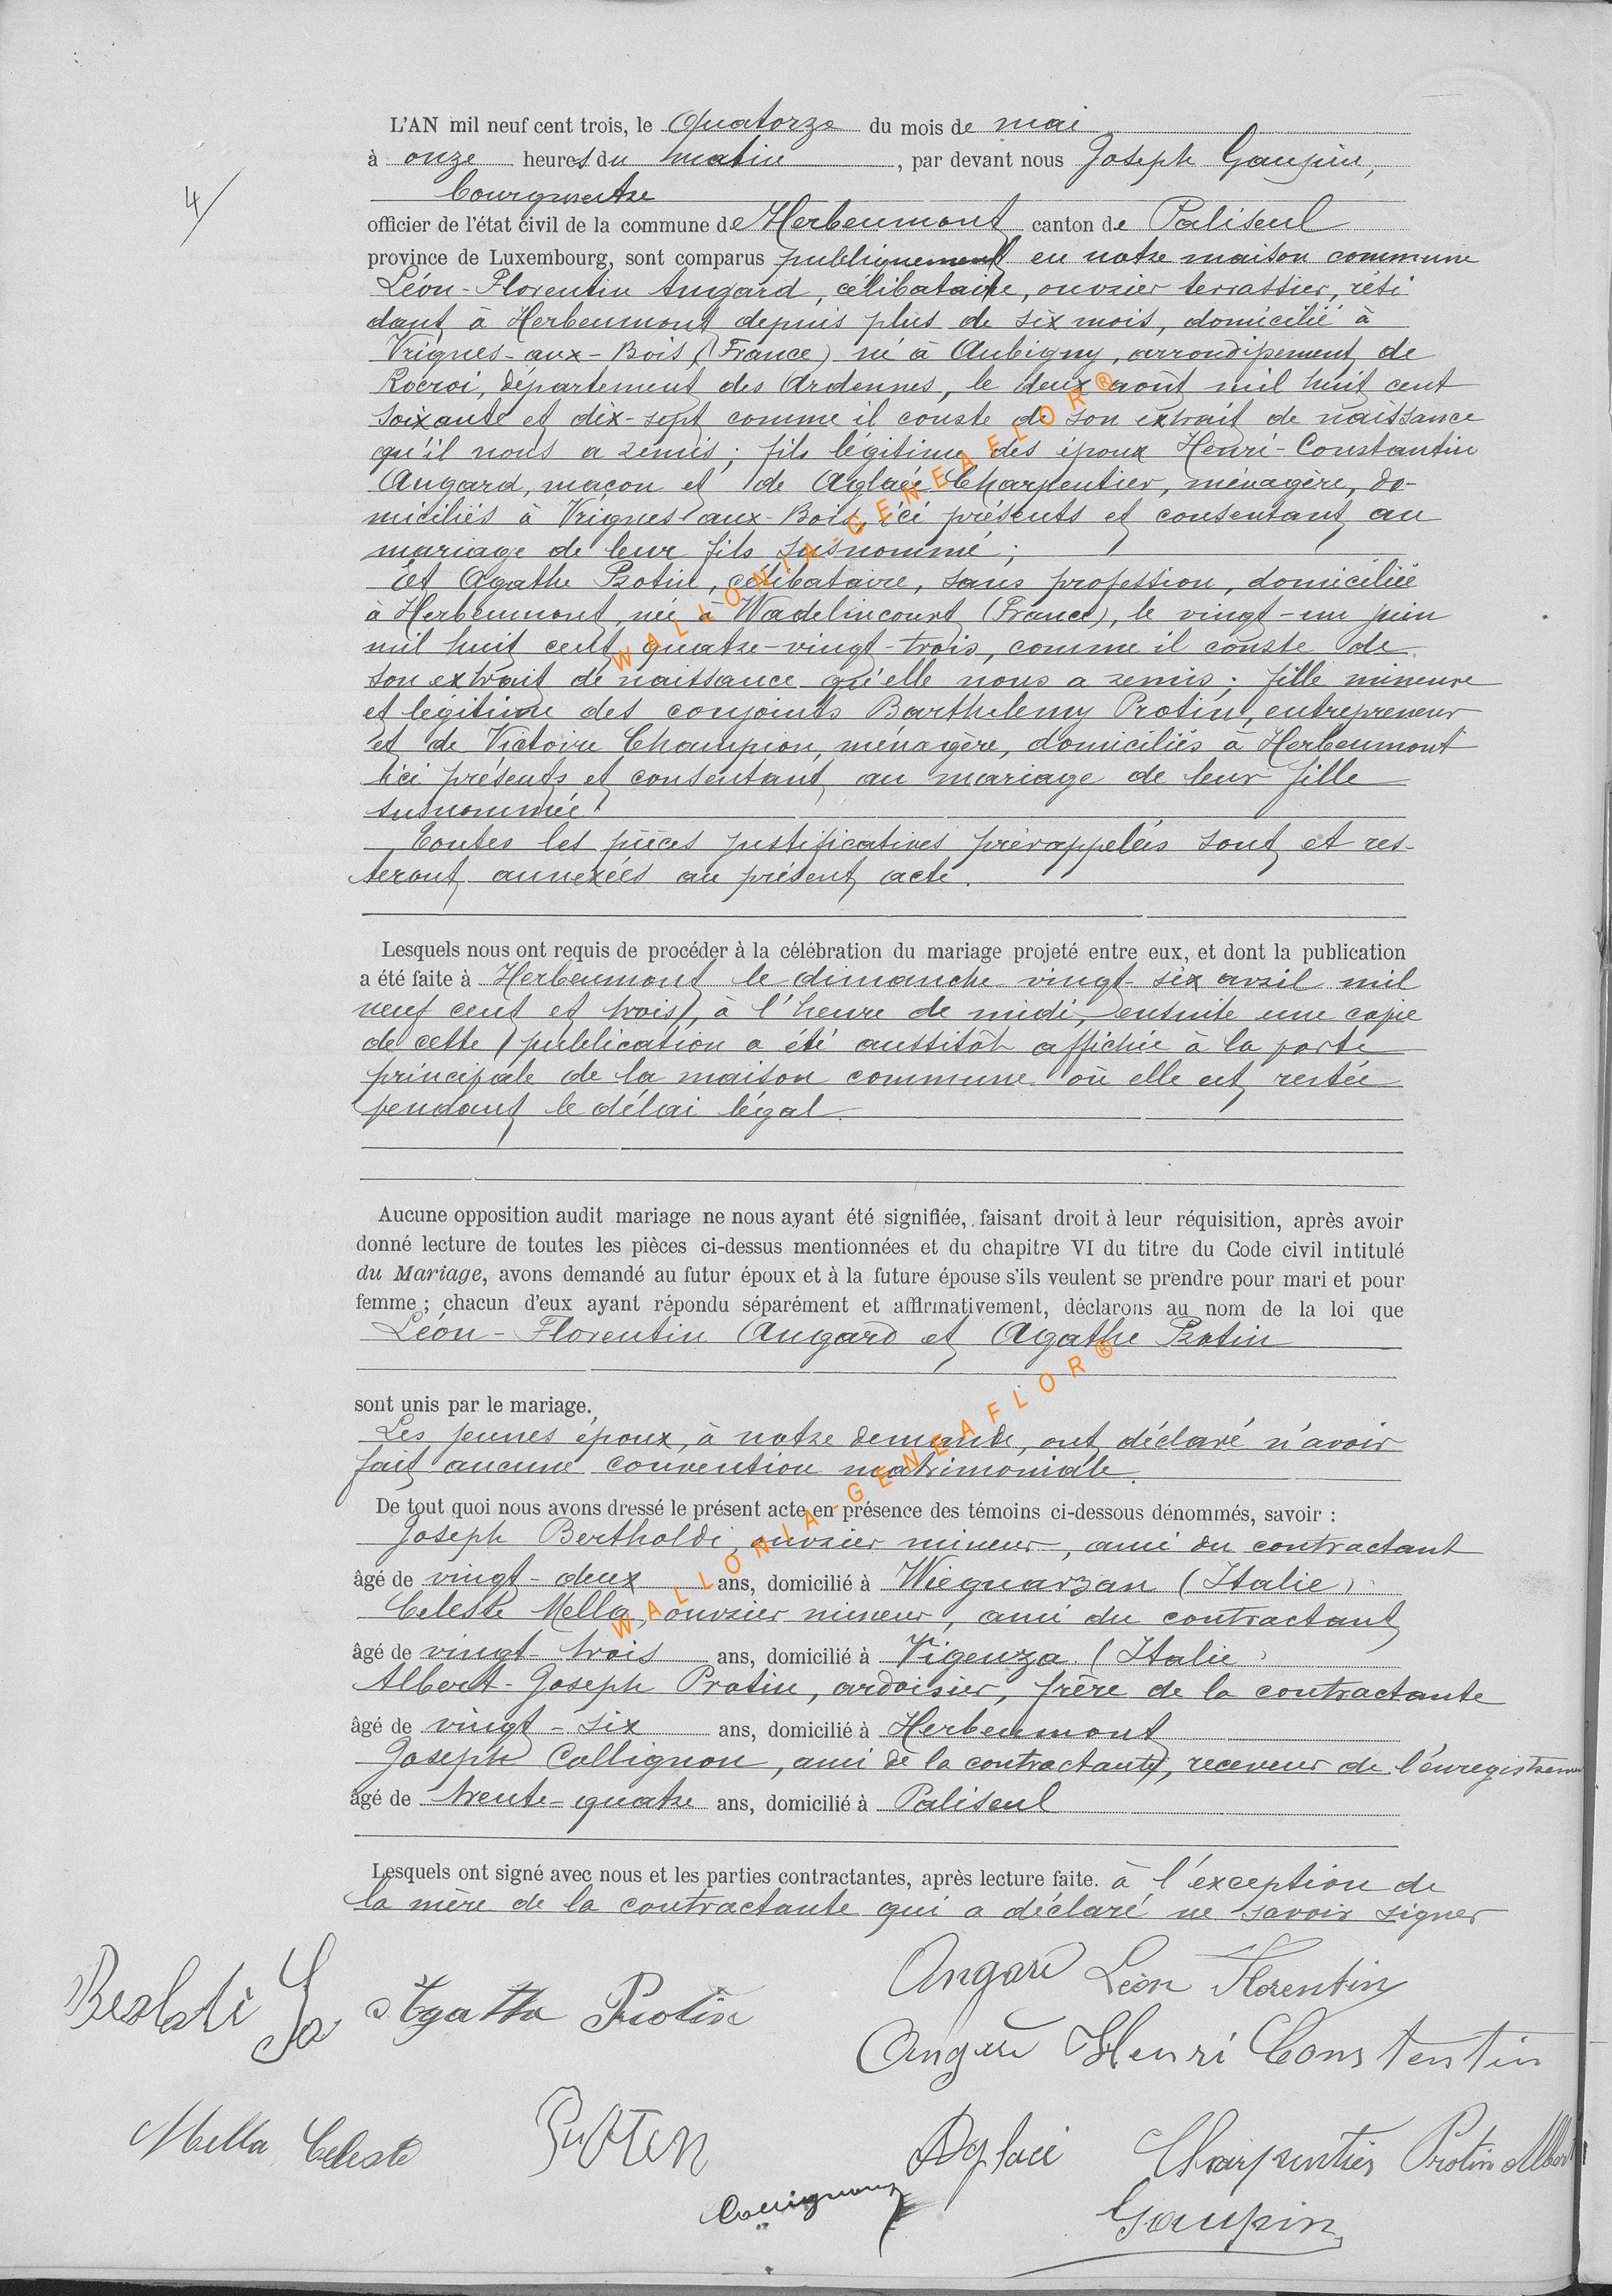 4/
L'AN mil neuf cent trois, le Quatorze du mois de mai
à onze heures du matin, par devant nous Joseph Gaupin,
bourgmestre
officier de l'état civil de la commune de Herbeumont canton de Paliseul
province de Luxembourg, sont comparus publiquement en notre maison commune
Léon-Florentin Angard, célibataire, ouvrier terrassier, rési
dant à Herbeumont depuis plus de six mois, domicilié à
Vrignes-aux-Bois (France) né à Aubigny, arrondissement de
Rocroi, département des Ardennes, le deux août mil huit cent
soixante et dix-sept comme il conste de son extrait de naissance
qu'il nous a remis; fils légitime des époux Henri-Constantin
Angard, maçon et de Aglaée Charpentier, ménagère, do-
miciliés à Vrignes aux-Bois, ici présents et consentant au
mariage de leur fils susnommé;
Et Agathe Protin, célibataire, sans profession, domiciliée
à Herbeumont, née à Wadelincourt (France), le vingt-un juin
mil huit cent quatre-vingt-trois, comme il conste de
son extrait de naissance qu'elle nous a remis; fille mineure
et légitime des conjoints Barthelemy Protin, entrepreneur
et de Victoire Champion, ménagère, domiciliés à Herbeumont
ici présents et consentant au mariage de leur fille
susnommée.
Toutes les pièces justificatives prérappelées sont et res-
teront annexées au présent acte.
Lesquels nous ont requis de procéder à la célébration du mariage projeté entre eux, et dont la publication
a été faite à Herbeumont le dimanche vingt-six avril mil
neuf cent et trois, à l'heure de midi, ensuite une copie
de cette publication a été aussitôt affichée à la porte
principale de la maison commune où elle est restée
pendant le délai légal.
Aucune opposition audit mariage ne nous ayant été signifiée, faisant droit à leur réquisition, après avoir
donné lecture de toutes les pièces ci-dessus mentionnées et du chapitre VI du titre du Code civil intitulé
du Mariage, avons demandé au futur époux et à la future épouse s'ils veulent se prendre pour mari et pour
femme; chacun d'eux ayant répondu séparément et affirmativement, déclarons au nom de la loi que
Léon-Florentin Angard et Agathe Protin
sont unis par le mariage.
Les jeunes époux, à notre demande, ont déclaré n'avoir
fait aucune convention matrimoniale.
De tout quoi nous avons dressé le présent acte en présence des témoins ci-dessous dénommés, savoir :
Joseph Bertholdi, ouvrier mineur, ami du contractant
âgé de vingt-deux ans, domicilié à Wieguarzan (Italie)
Celeste Mella, ouvrier mineur, ami du contractant
âgé de vingt-trois ans, domicilié à Vigenza (Italie)
Albert-Joseph Protin, ardoisier, frère de la contractante
âgé de vingt-six ans, domicilié à Herbeumont
Joseph Collignon, ami de la contractante, receveur de l'enregistrement
âgé de trente-quatre ans, domicilié à Paliseul
Lesquels ont signé avec nous et les parties contractantes, après lecture faite. à l'exception de
la mère de la contractante qui a déclaré ne savoir signer
Angard Léon Florentin
Agatha Protin
Angard Henri Constentin
Mella Celeste
Aglaé Charpentier Protin Albert
Collignon
Gaupin
WALLONIA-GENEAFLOR®
WALLONIA-GENEAFLOR®